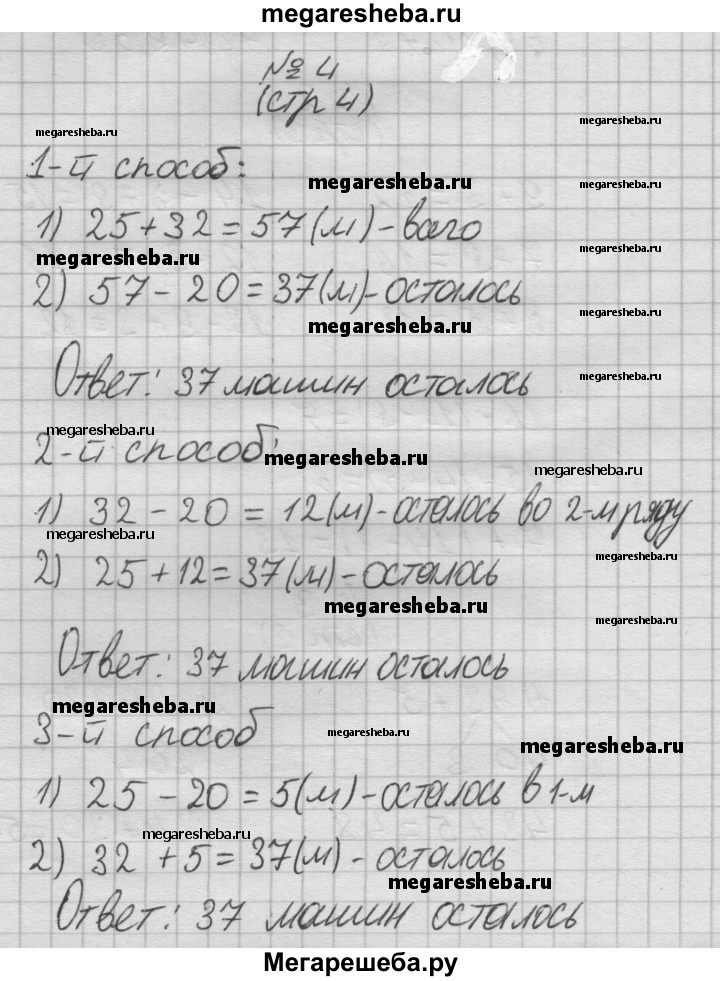 megaresheba.ru
№ 4
(стр 4)
megaresheba.ru
megaresheba.ru
1-й способ:
megaresheba.ru
megaresheba.ru
1) 25+32=57(м)-всего
megaresheba.ru
megaresheba.ru
2) 57-20=37(м)-осталось
megaresheba.ru
megaresheba.ru
Ответ: 37 машин осталось
megaresheba.ru
megaresheba.ru
2-й способ:
megaresheba.ru
megaresheba.ru
1) 32-20=12(м)-осталось во 2-м ряду
megaresheba.ru
megaresheba.ru
2) 25+12=37(м)-осталось
megaresheba.ru
megaresheba.ru
Ответ: 37 машин осталось
megaresheba.ru
3-й способ
megaresheba.ru
megaresheba.ru
1) 25-20=5(м)-осталось в 1-м
megaresheba.ru
2) 32+5=37(м)-осталось
megaresheba.ru
Ответ: 37 машин осталось
Мегарешеба.ру